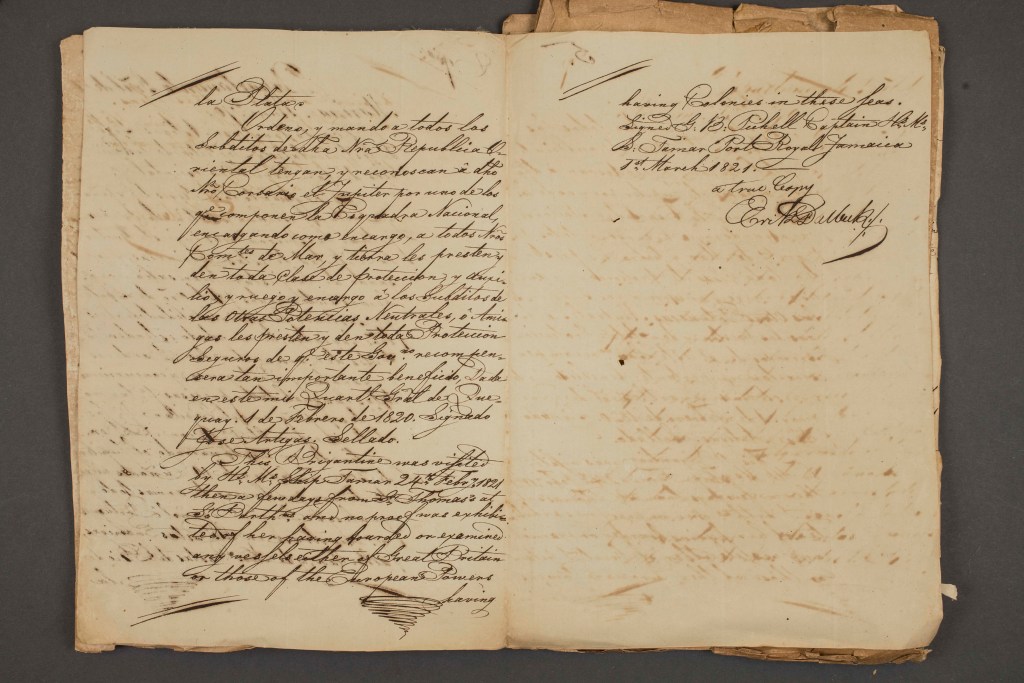 la Plata
Ordeno, y mando a todos los
Subditos de dha Nra Republica O-
riental tengan, y reconoscan â dho
Nro Corsario el Jupiter por uno de los
qe componen la Esquadra Nacional,
encargando como encargo, a todos Nros
Comtes de Mar, y tierra les presten y
den toda clase de proteccion, y auxi-
lio, y ruego y encargo â los Subditos de
las Otras Potencias Neutrales, ô Ami-
gas les presten y den toda Proteccion
seguros de qe este Govno recompen-
sera tan importante beneficio, Dada
en este mio Quartl Gral de
1 de Febrero de 1820. Signado
Jose Artigas. Sellado.
This Brigantine was visited
by H. Ms Ship Tamar 24th Febry 1821
then a few days from St Thomas's at
St Barths and no proof was exhibi-
ted of her having boarded or examined
any vessels either of Great Britain
or those of the European Powers
having
having Colonies in these Seas.
Signed G: B: Captain H. Ms
S: Tamar Port Royal Jamaica
1st March 1821.
a true Copy